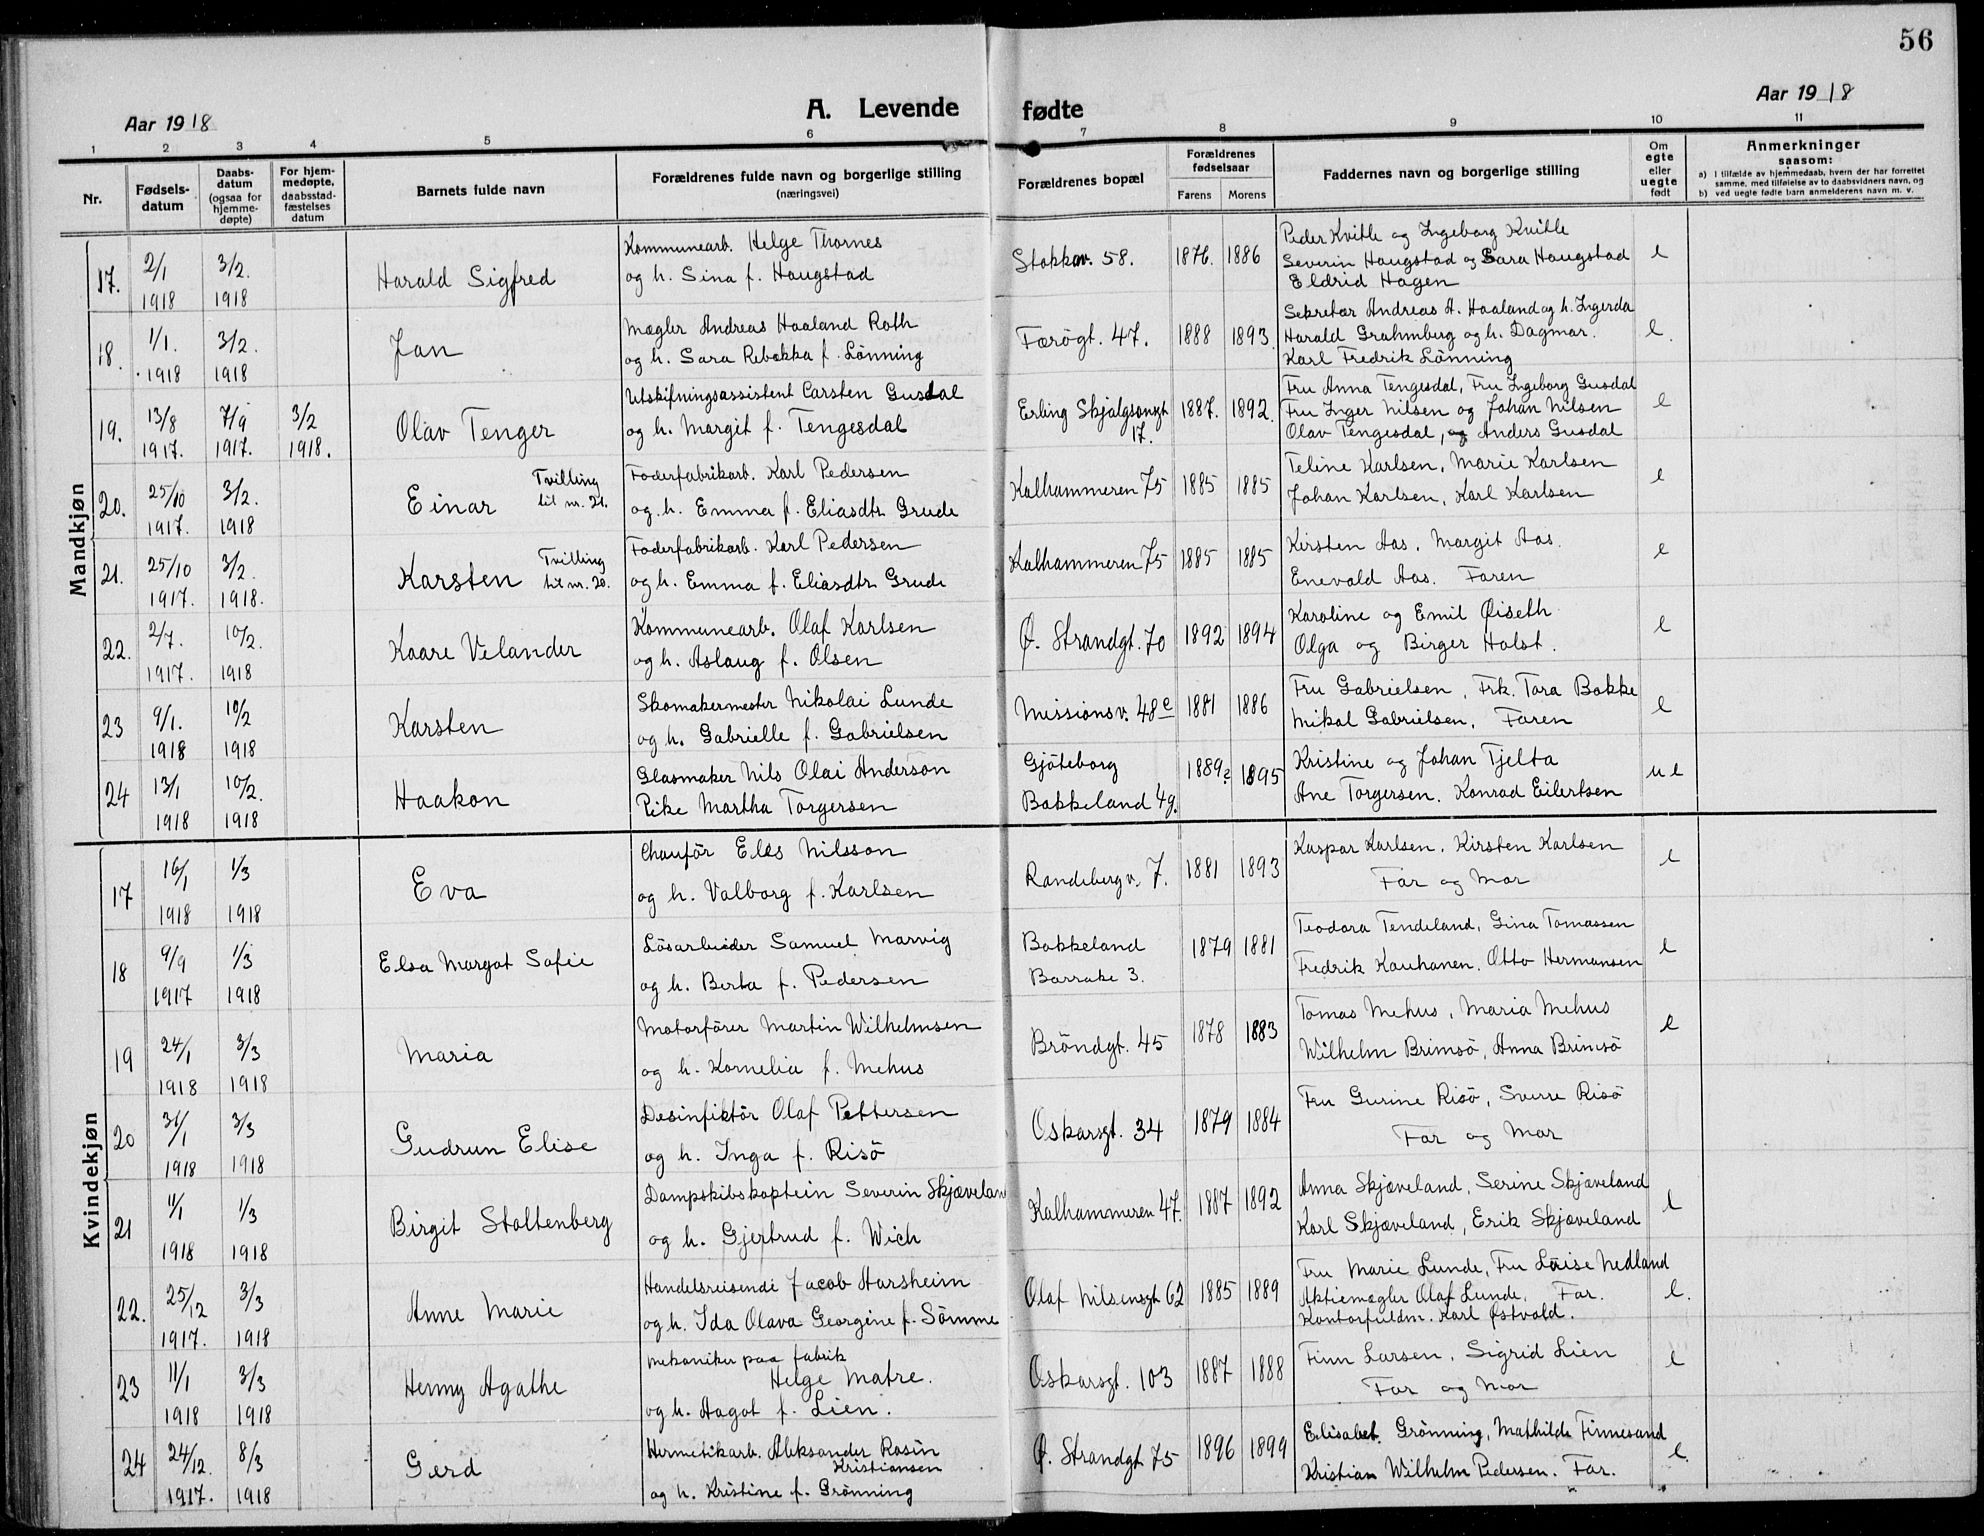 56
Aar 1918
A. Levende fødte
Aar 1918
1 2 3 4 5 6 7 8 9 10 11
Nr.
Fødsels-
datum
Daabs-
datum
(ogsaa for
hjemme-
døpte)
For hjem-
medøpte,
daabsstad-
fæstelses
datum
Barnets fulde navn
Forældrenes fulde navn og borgerlige stilling
(næringsvei)
Forældrenes bopæl
Forældrenes
fødselsaar
Farens Morens
Faddernes navn og borgerlige stilling
Om
egte
eller
uegte
født
Anmerkninger
saasom:
a) I tilfælde av hjemmedaab, hvem der har forrettet
samme, med tilføielse av to daabsvidners navn, og
b) ved uegte fødte barn anmelderens navn m. v.
Mandkjøn
17. 2/1 1918 3/2. 1918 Harald Sigfred
Kommunearb. Helge Thornes
og h. Sina f. Haugstad
Stokkav. 58. 1876. 1886
Peder Kvitle og Ingeborg Kvitle
Severin Haugstad og Sara Haugstad
Eldrid Hagen
e
18. 1/1. 1918 3/2. 1918 Jan
Mægler Andreas Haaland Roth
og h. Sara Rebekka f. Lönning
Færögt. 47. 1888 1893.
Sekretær Andreas A. Haaland og h. Ingerda
Harald Grahmberg og h. Dagmar.
Karl Fredrik Lönning
e.
19. 13/8 1917. 7/9 1917. 3/2 1918. Olav Tenger
Utskiftningsassistent Carsten Gusdal
og h. Margit f. Tengesdal
Erling Skjalgsonsgt
17.
1887. 1892.
Fru Anna Tengesdal, Fru Ingeborg Gusdal
Fru Inger Nilsen og Johan Nilsen
Olav Tengesdal, og Anders Gusdal
e
20. 25/10 1917. 3/2. 1918 Einar Tvilling
til nr. 21.
Foderfabrikarb. Karl Pedersen
og h. Emma f. Eliasdtr Grude
Kalhammeren 75 1885 1885
Teline Karlsen, Marie Karlsen
Johan Karlsen, Karl Karlsen
e
21. 25/10 1917. 3/2. 1918. Karsten Tvilling
til nr. 20.
Foderfabrikarb. Karl Pedersen
og h. Emma f. Eliasdtr Grude
Kalhammeren 75 1885 1885
Kirsten Aas, Margit Aas.
Enevald Aas. Faren
e
22. 2/7. 1917. 10/2. 1918 Kaare Velander
Kommunearb. Olaf Karlsen
og h. Aslaug f. Olsen
Ø. Strandgt. 70 1892 1894
Karoline og Emil Øiseth
Olga og Birger Holst.
e
23 9/1. 1918 10/2 1918 Karsten
Skomakermester Nikolai Lunde
og h. Gabrielle f. Gabrielsen
Missionsv. 48 e 1881 1886
Fru Gabrielsen, Frk. Tora Bakke
Mikal Gabrielsen, Faren
e
24 13/1 1918 10/2. 1918 Haakon
Glasmaker Nils Olai Anderson
Pike Martha Torgersen
Gjöteborg
Bakkeland 49.
1889? 1895
Kristine og Johan Tjelta
Ane Torgersen. Konrad Eilertsen
u e
Kvindekjøn
17 16/1 1918 1/3 1918 Eva
Chauför Eles Nilsson
og h. Valborg f. Karlsen
Randeberg v. 7. 1881 1893
Kaspar Karlsen, Kirsten Karlsen
Far og Mor
e
18 9/9 1917 1/3 1918 Elsa Margot Sofie
Lösarbeider Samuel Marvig
og h. Berta f. Pedersen
Bakkeland
Barrake 3.
1879 1881
Teodora Tendeland, Gina Tomassen
Fredrik Kauhanen, Otto Hermansen
e
19 24/1 1918 3/3 1918 Maria
Motorförer Martin Wilhelmsen
og h. Kornelia f. Mehus
Bröndgt. 45 1878 1883
Tomas Mehus, Maria Mehus
Wilhelm Brimsö, Anna Brimsö
e
20 31/1 1918 3/3 1918 Gudrun Elise
Desinfiktör Olaf Pettersen
og h. Inga f. Risö
Oskarsgt. 34 1879 1884
Fru Gurine Risö, Sverre Risö
Far og Mor
21 11/1 1918 1/3 1918 Birgit Stoltenberg
Dampskibskaptein Severin Skjæveland
og h. Gjertrud f. Wich
Kalhammeren 47. 1887 1892
Anna Skjæveland, Serine Skjæveland
Karl Skjæveland, Erik Skjæveland
e
22. 25/12 1917. 3/3 1918 Anne Marie
Handelsreisende Jacob Harsheim
og h. Ida Olava Georgine f. Sömme
Olaf Nilsensgt 62 1885 1889
Fru Marie Lunde, Fru Lovise Nedland
Aktiemægler Olaf Lunde. Far.
Kontorfuldm. Karl Østvold.
e.
23 11/1 1918 3/3 1918 Henny Agathe
Mekaniker paa fabrik
Helge Matre.
og h. Aagot f. Lien.
Oskarsgt. 103 1887 1888
Finn Larsen, Sigrid Lien
Far og Mor
e
24 24/12. 1917. 8/3 1918 Gerd
Hermetikarb. Aleksander Rosin
Kristiansen
og h. Kristine f. Grönning
Ø. Strandgt 75 1896 1899
Elisabet Grönning, Mathilde Finnesand
Kristian Wilhelm Pedersen. Far.
e.